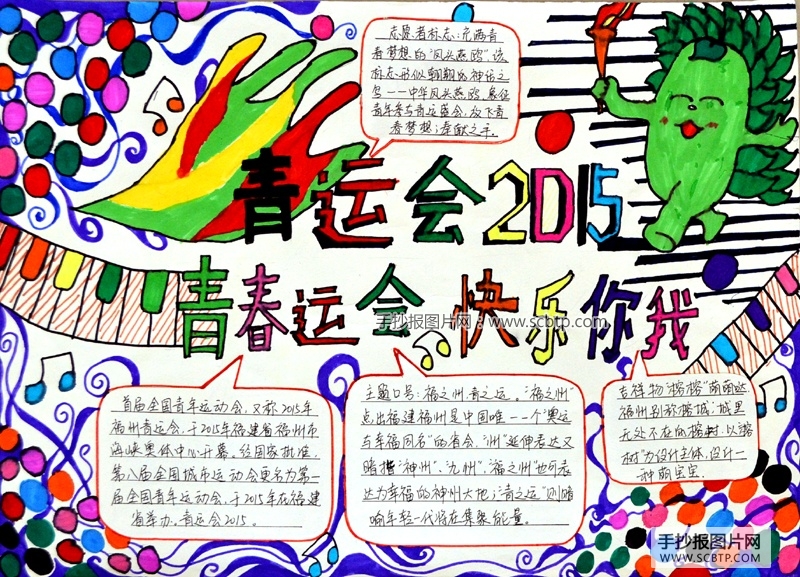 志愿者标志:充满青
春梦想的“凤头燕鸥”,该
标志形似翱翔的神话之
鸟——中华凤头燕鸥,象征
青年来在青运盛会,放飞青
春梦想;奉献之手。
青运会2015
青春运会 快乐你我
手抄报图片网:www.scbtp.com
首届全国青年运动会,又称2015年
福州青运会,于2015年福建省福州市
海峡奥体中心开幕。经国家批准,
第八届全国城市运动会更名为第一
届全国青年运动会,于2015年在福建
省举办。青运会2015。
主题口号:福之州·青之运。“福之州”
点出福建福州是中国唯一一个“奥运
与幸福同名”的省会,“州”延伸表达又
暗指“神州”、“九州”,“福之州”也可表
达为幸福的神州大地;“青之运”则暗
响年轻一代将在集聚能量。
吉祥物“榕榕”萌萌哒,
福州别称榕城,城里
无处不在的榕树,以榕
树为设计主体,设计一
种萌宝宝。
手抄报图片网
SCBTP.COM